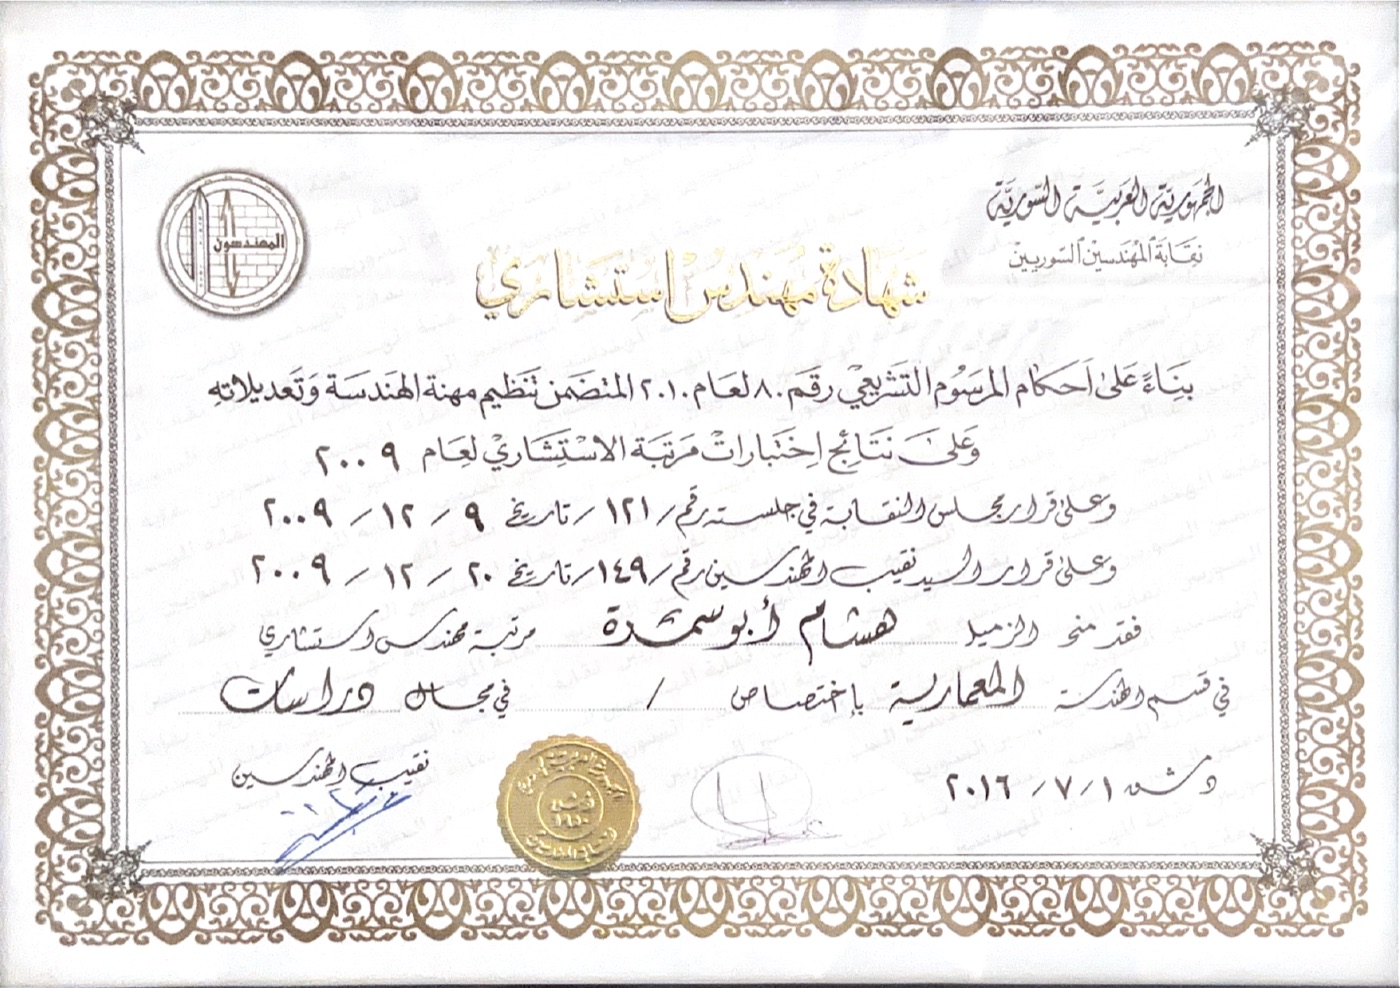 الجمهورية العربية السورية
نقابة المهندسين السوريين
المهندسون
شهادة مهندس استشاري
بناءً على أحكام المرسوم التشريعي رقم ٨٠ لعام ٢٠١٠ المتضمن تنظيم مهنة الهندسة وتعديلاته
وعلى نتائج اختبارات مرتبة الاستشاري لعام ٢٠٠٩
وعلى قرار مجلس النقابة في جلسته رقم / ١٢١ / تاريخ ٩ / ١٢ / ٢٠٠٩
وعلى قرار السيد نقيب المهندسين رقم / ١٤٩ / تاريخ ٢٠ / ١٢ / ٢٠٠٩
فقد منح الزميل هشام أبو سمدة مرتبة مهندس استشاري
في قسم الهندسة المعمارية باختصاص / في مجال دراسات
دمشق ١ / ٧ / ٢٠١٦
نقيب المهندسين